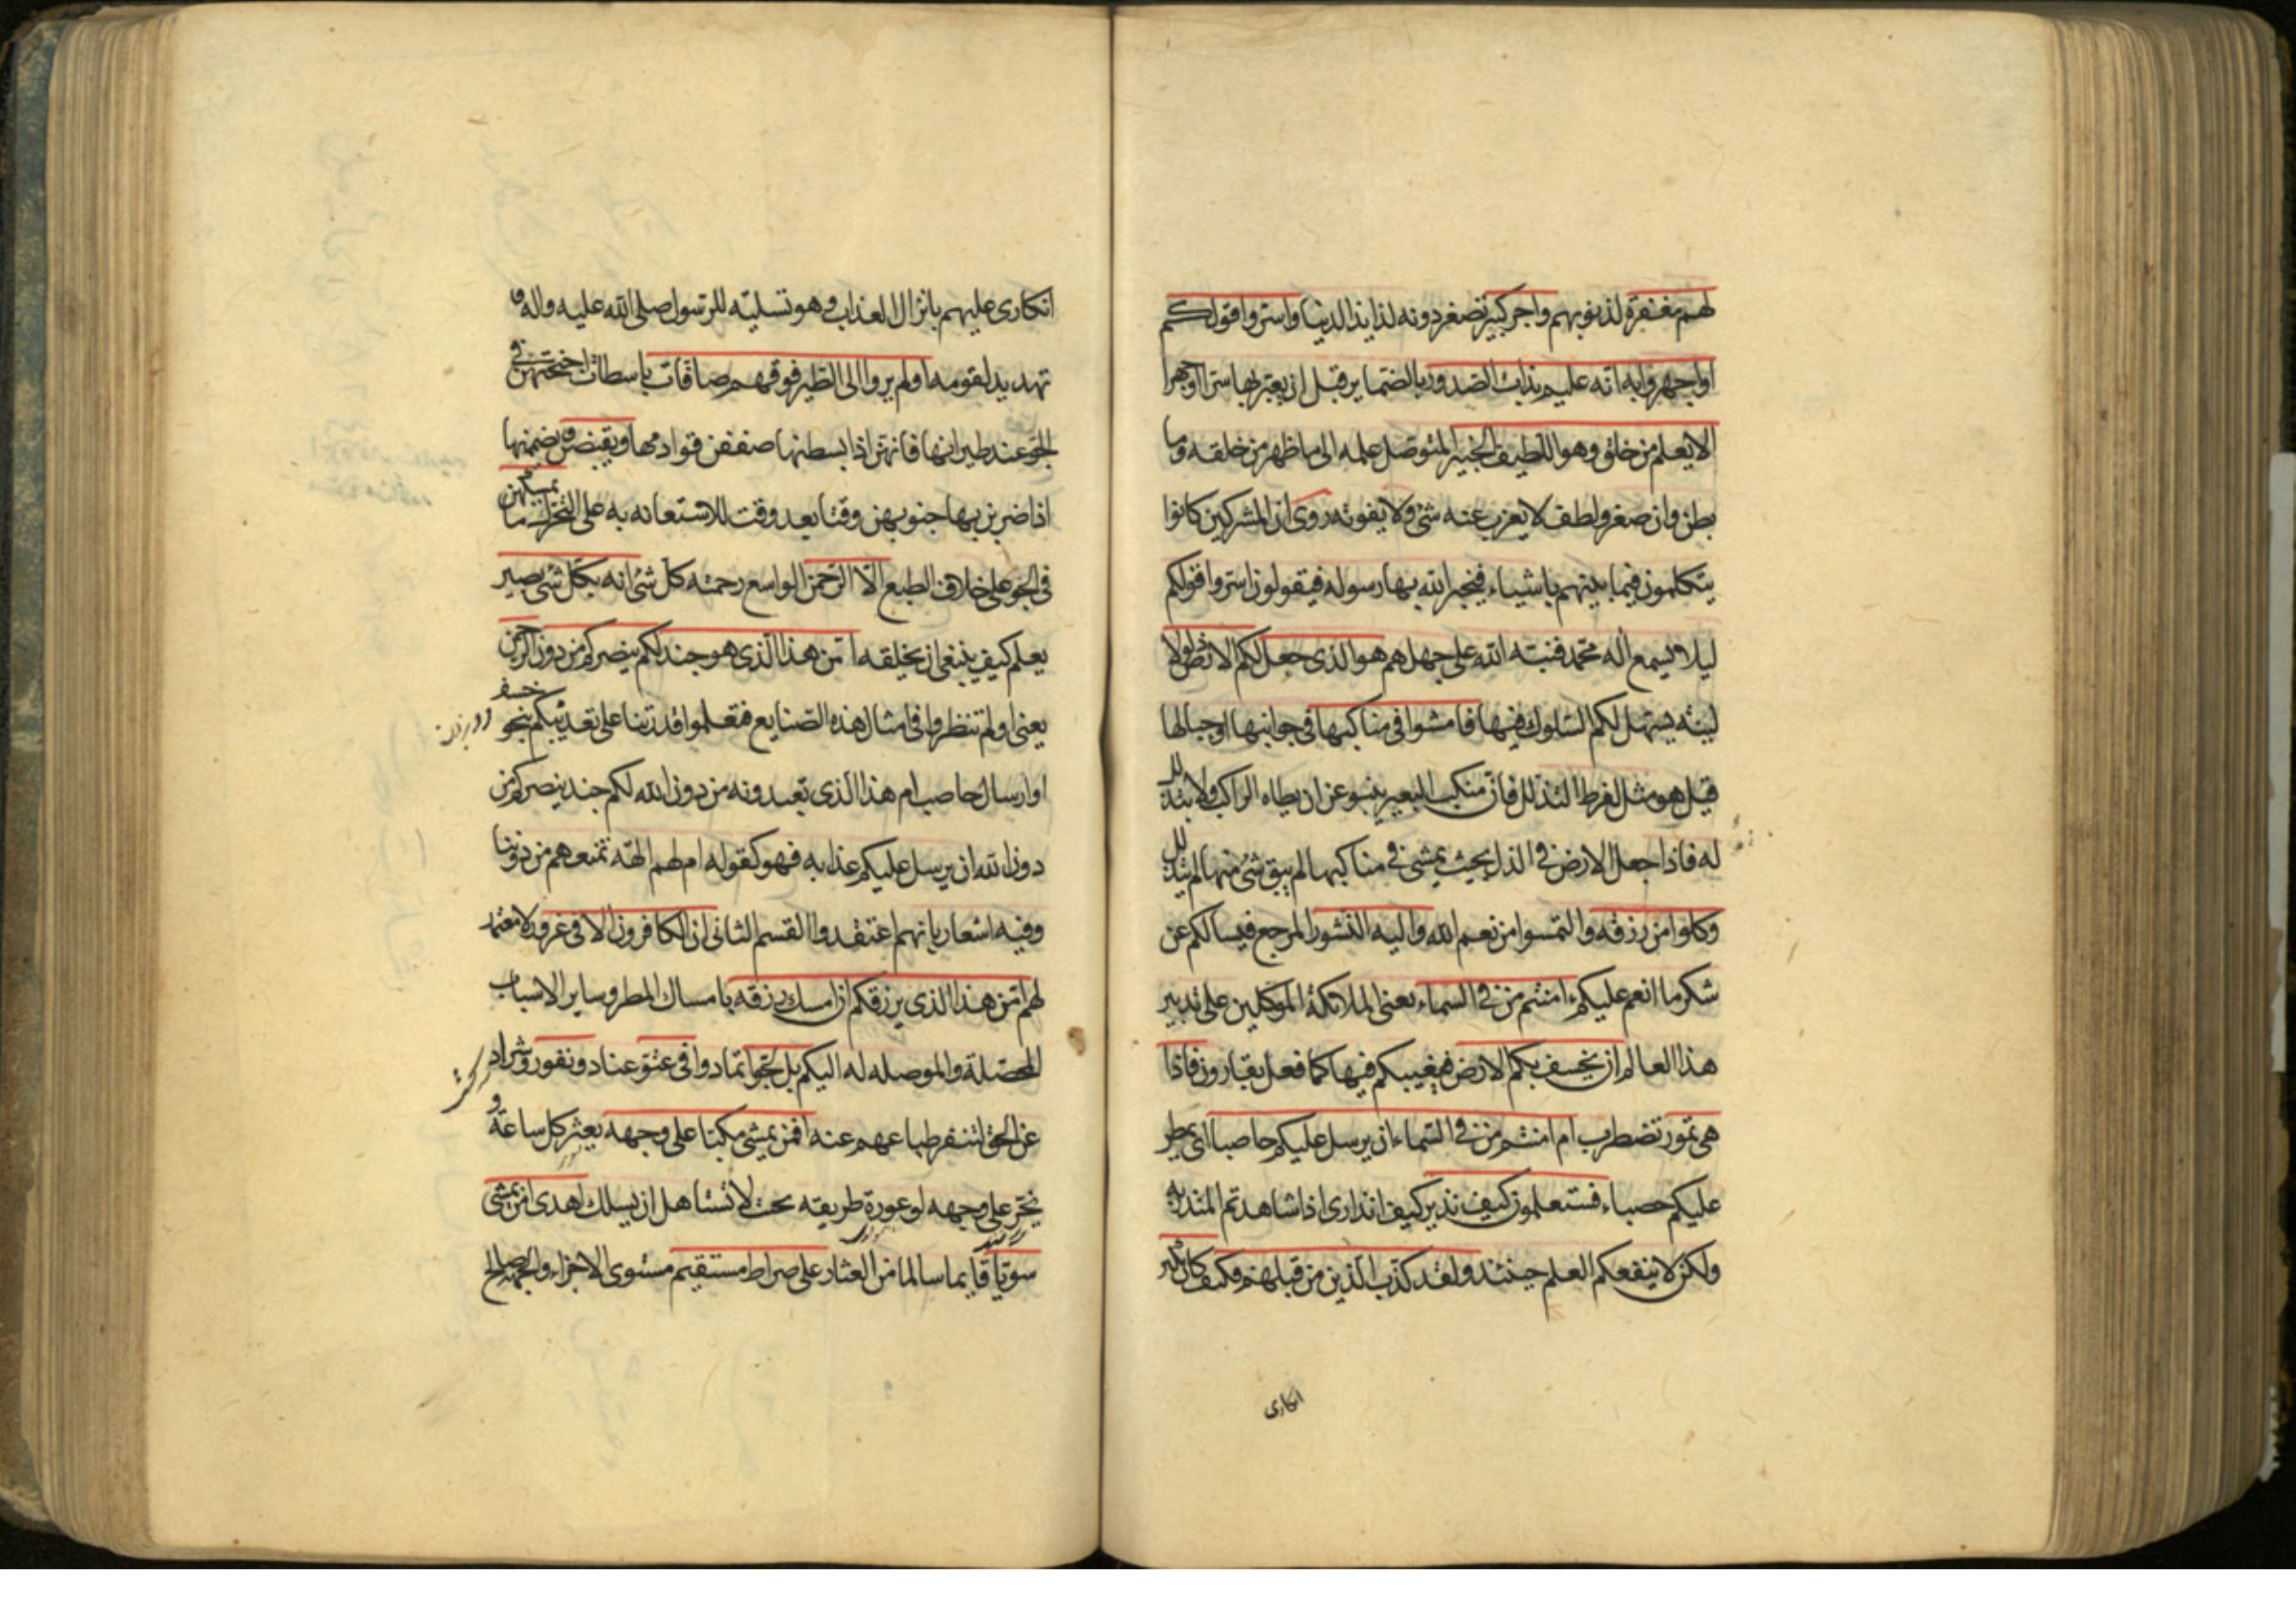 لهم مغفرة لذنوبهم واجر كبير تصغر دونه لذايذ الدنيا واسروا قولكم
او اجهروا به انه عليم بذات الصدور بالضماير قبل ان يعبر بها سرا او جهرا
الا يعلم من خلق وهو اللطيف الخبير المتوصل علمه الى ما ظهر من خلقه وما
بطن وان صغر ولطف لا يعزب عنه شئ ولا يفوته روى ان المشركين كانوا
يتكلمون فيما بينهم باشياء فيخبر الله بها رسوله فيقولون اسروا قولكم
ليلا يسمع اله محمد فنبه الله على جهلهم هو الذى جعل لكم الارض ذلولا
لينه يسهل لكم السلوك فيها فامشوا فى مناكبها فى جوانبها او جبالها
قيل هو مثل لفرط التذلل فان منكب البعير ينبو عن ان يطاه الراكب ولا يتذلل
له فاذا جعل الارض فى الذل بحيث يمشى فى مناكبها لم يبق شئ منها لم يتذلل
وكلوا من رزقه والتمسوا من نعم الله واليه النشور المرجع فيسالكم عن
شكر ما انعم عليكم ءامنتم من فى السماء يعنى الملائكة الموكلين على تدبير
هذا العالم ان يخسف بكم الارض فيغيبكم فيها كما فعل بقارون فاذا
هى تمور تضطرب ام امنتم من فى السماء ان يرسل عليكم حاصبا اى يمطر
عليكم حصباء فستعلمون كيف نذير كيف انذارى اذا شاهدتم المنذر به
ولكن لا ينفعكم العلم حينئذ ولقد كذب الذين من قبلهم فكيف كان نكير
انكارى
انكارى عليهم بانزال العذاب وهو تسلية للرسول صلى الله عليه واله و
تهديد لقومه اولم يروا الى الطير فوقهم صافات باسطات اجنحتهن فى
الجو عند طيرانها فانهن اذا بسطنها صففن قوادمها ويقبضن ويضممنها
اذا ضربن بها جنوبهن وقتا بعد وقت للاستعانه به على التحرك ما يمسكهن
فى الجو على خلاف الطبع الا الرحمن الواسع رحمته كل شئ انه بكل شئ بصير
يعلم كيف ينبغى ان يخلقه امن هذا الذى هو جند لكم ينصركم من دون الرحمن
يعنى اولم تنظروا فى امثال هذه الصنايع فتعلموا قدرتنا على تعذيبكم بنحو خسف
او ارسال حاصب ام هذا الذى تعبدونه من دون الله لكم جند ينصركم من
دون الله ان يرسل عليكم عذابه فهو كقوله ام لهم الهة تمنعهم من دوننا
وفيه اشعار بانهم اعتقدوا القسم الثانى ان الكافرون الا فى غرور لا معتمد
لهم امن هذا الذى يرزقكم ان امسك رزقه بامساك المطر وساير الاسباب
المحصلة والموصله له اليكم بل لجوا تمادوا فى عتو عناد ونفور وشراد
عن الحق لتنفر طباعهم عنه افمن يمشى مكبا على وجهه يعثر كل ساعة و
يخر على وجهه لوعورة طريقه بحيث لا تستاهل ان يسلك اهدى امن يمشى
سويا قايما سالما من العثار على صراط مستقيم مستوى الاجزاء والجهة صالح